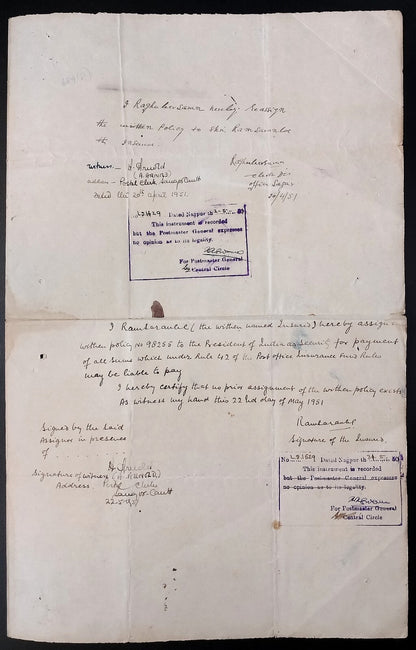 I Raghubersaran hereby Reassign
the written Policy to Shri Ramsaranlal
the Insured.
witness - A. Arnold
(A. ARNOLD)
Postal Clerk Saugor Cantt
Dated the 20th April 1951
Raghubersaran
clerk
office Saugor
20/4/51
Dated Nagpur th
This instrument is recorded
but the Postmaster General expresses
no opinion as to its legality.
For Postmaster General
Central Circle
I Ramsaranlal (the within named Insured) hereby assign
within policy No 98255 to the President of India as Security for payment
of all sums which under Rule 42 of the Post office Insurance Fund Rules
may be liable to pay
I hereby certify that no prior assignment of the within policy exists
As witness my hand this 22nd day of May 1951
Ramsaranlal
Signature of the Insured.
Signed by the said
Assignor in presence
of
A. Arnold
Signature of witness (A. ARNOLD)
Address Postal Clerk
Saugor Cantt
22-5-1951
No Dated Nagpur th
This instrument is recorded
but the Postmaster General expresses
no opinion as to its legality.
For Postmaster General
Central Circle